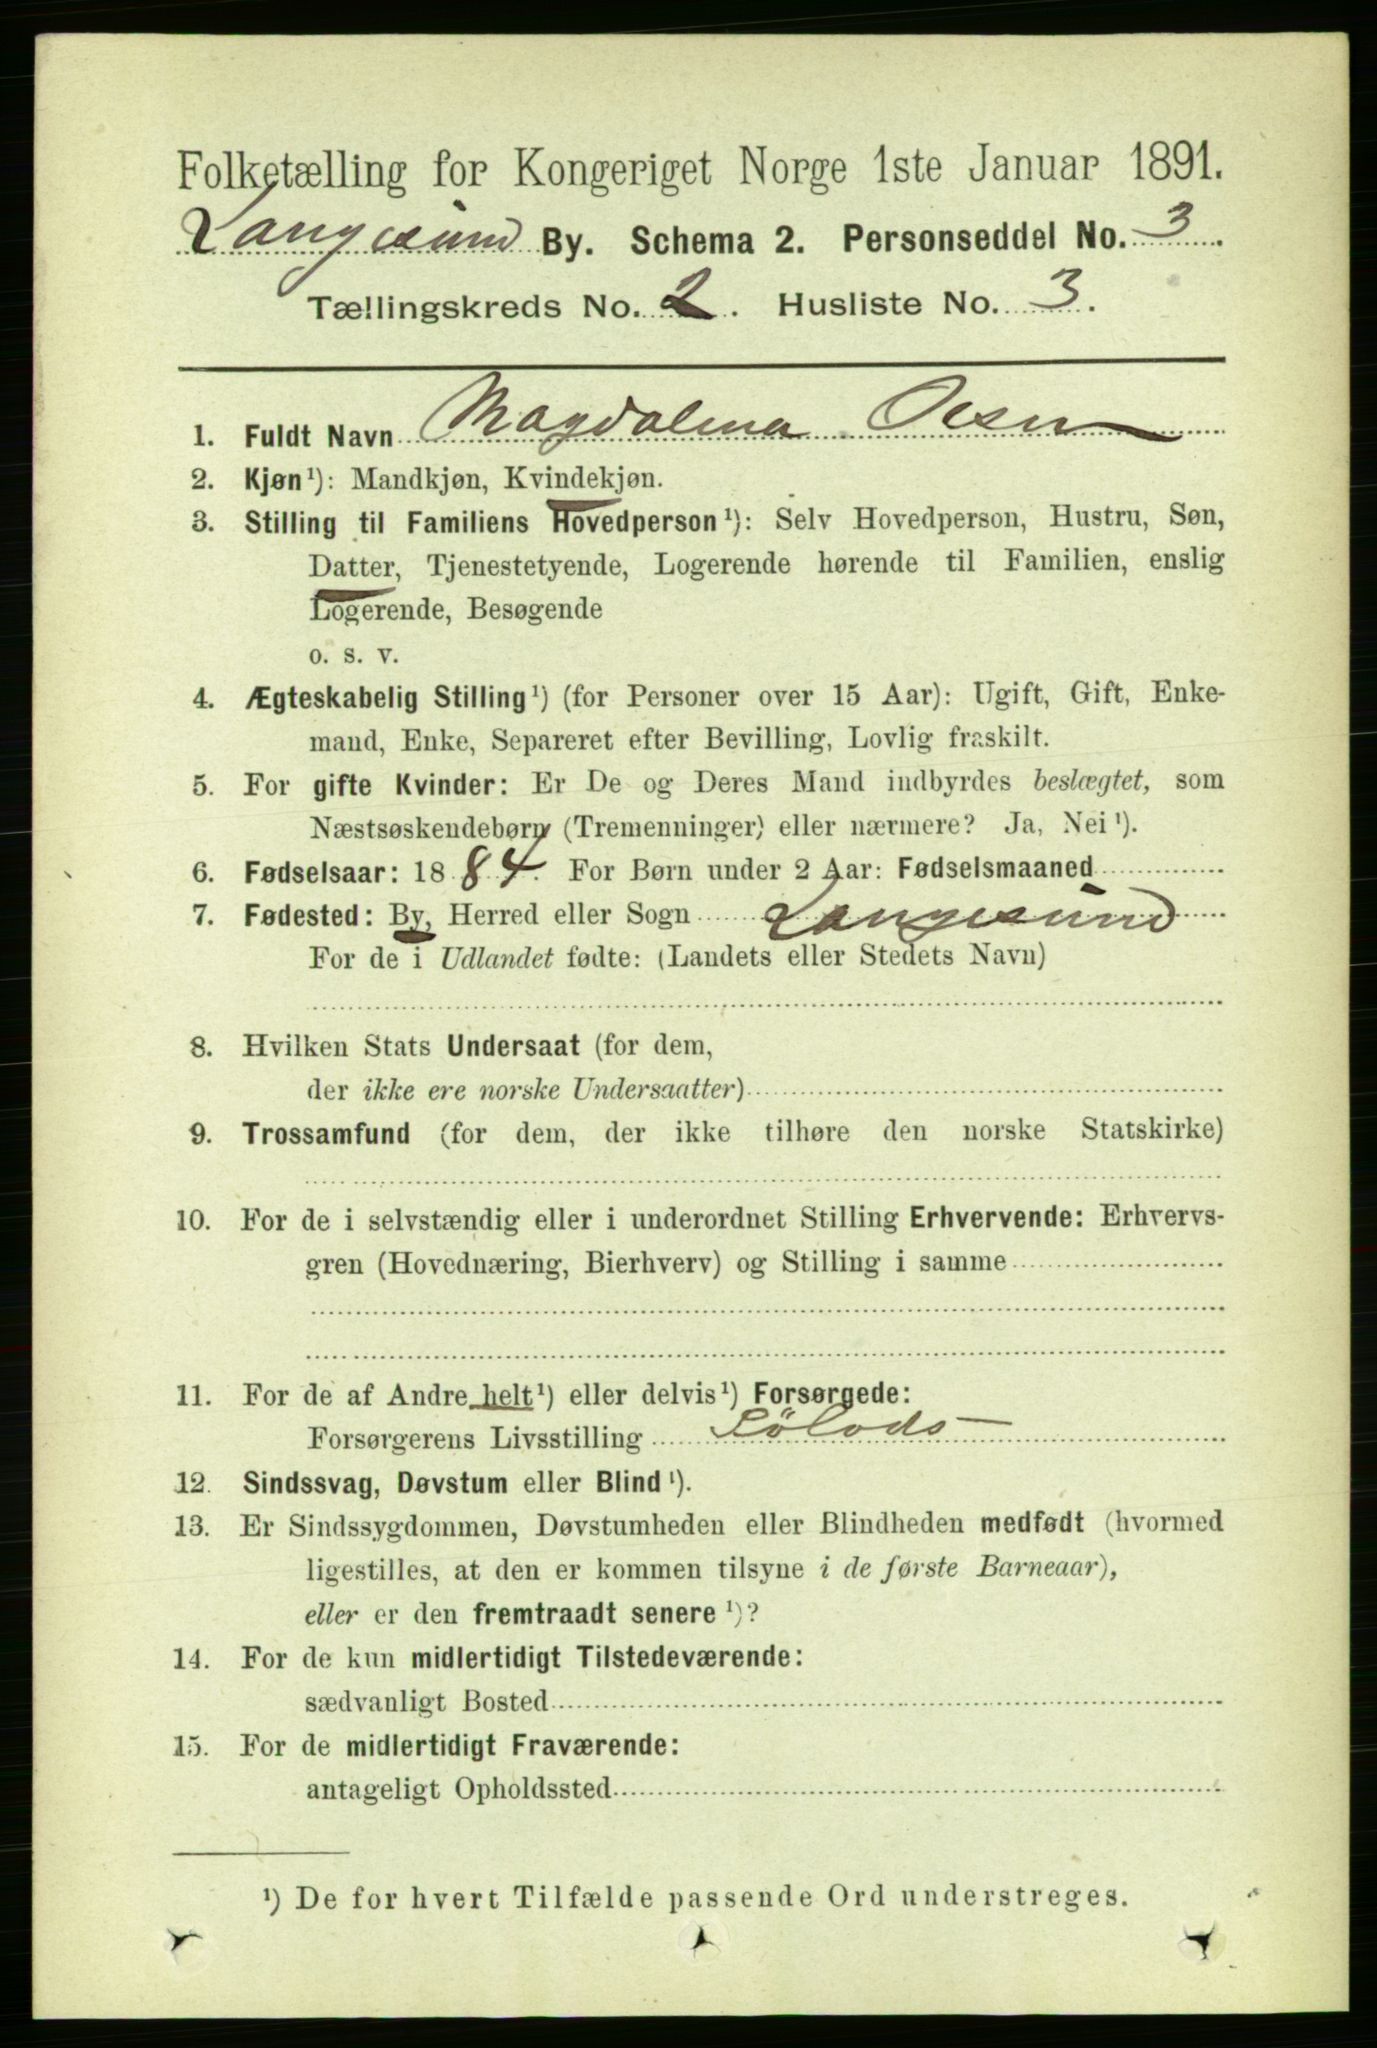 Folketælling for Kongeriget Norge 1ste Januar 1891.
Langesund By. Schema 2. Personseddel No. 3.
Tællingskreds No. 2. Husliste No. 3.
1. Fuldt Navn Magdalena Olsen
2. Kjøn¹): Mandkjøn, Kvindekjøn.
3. Stilling til Familiens Hovedperson¹): Selv Hovedperson, Hustru, Søn,
Datter, Tjenestetyende, Logerende hørende til Familien, enslig
Logerende, Besøgende
o. s. v.
4. Ægteskabelig Stilling¹) (for Personer over 15 Aar): Ugift, Gift, Enke-
mand, Enke, Separeret efter Bevilling, Lovlig fraskilt.
5. For gifte Kvinder: Er De og Deres Mand indbyrdes beslægtet, som
Næstsøskendebørn (Tremenninger) eller nærmere? Ja, Nei¹).
6. Fødselsaar: 1884. For Børn under 2 Aar: Fødselsmaaned
7. Fødested: By, Herred eller Sogn Langesund
For de i Udlandet fødte: (Landets eller Stedets Navn)
8. Hvilken Stats Undersaat (for dem,
der ikke ere norske Undersaatter)
9. Trossamfund (for dem, der ikke tilhøre den norske Statskirke)
10. For de i selvstændig eller i underordnet Stilling Erhvervende: Erhvervs-
gren (Hovednæring, Bierhverv) og Stilling i samme
11. For de af Andre helt¹) eller delvis¹) Forsørgede:
Forsørgerens Livsstilling Sölods
12. Sindssvag, Døvstum eller Blind¹).
13. Er Sindssygdommen, Døvstumheden eller Blindheden medfødt (hvormed
ligestilles, at den er kommen tilsyne i de første Barneaar),
eller er den fremtraadt senere¹)?
14. For de kun midlertidigt Tilstedeværende:
sædvanligt Bosted
15. For de midlertidigt Fraværende:
antageligt Opholdssted
¹) De for hvert Tilfælde passende Ord understreges.